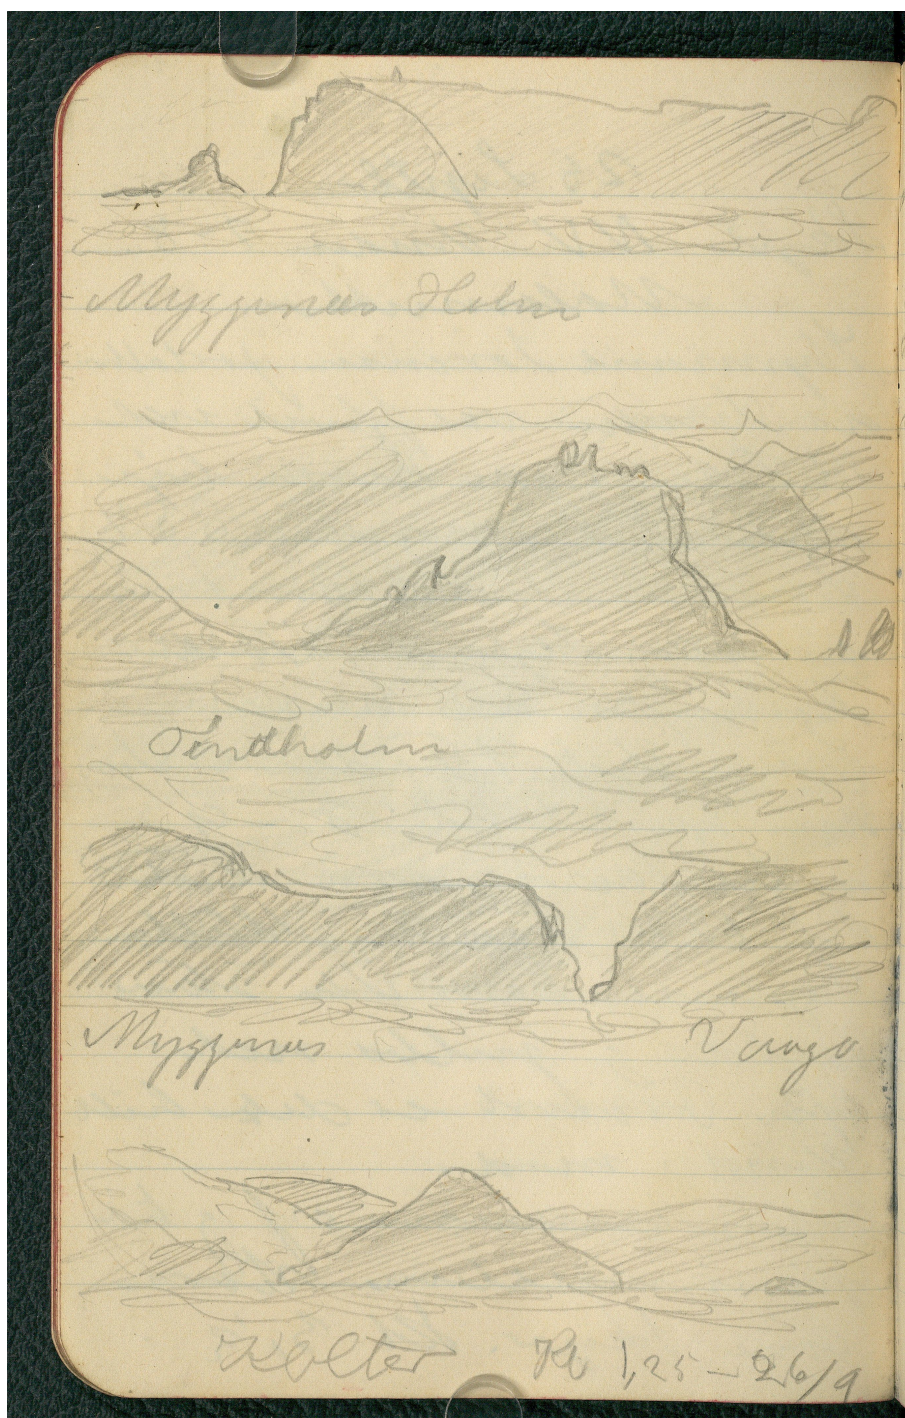 Myggenæs Holm
Tindholm
Myggenæs Vaagø
Kolter Kl 1,25 – 26/9